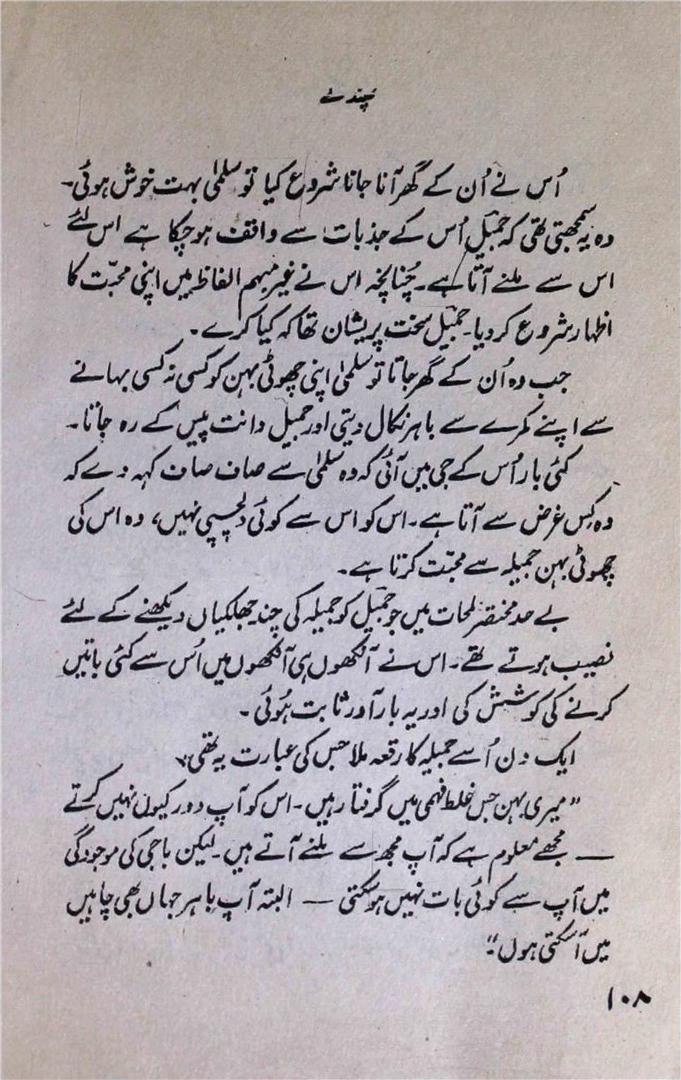 پھندنے
اُس نے اُن کے گھر آنا جانا شروع کیا تو سلمیٰ بہت خوش ہوئی۔
وہ یہ سمجھتی تھی کہ جمیل اُس کے جذبات سے واقف ہو چکا ہے اس لئے
اس سے ملنے آتا ہے۔ چُنانچہ اس نے غیر مبہم الفاظ میں اپنی محبّت کا
اظہار شروع کر دیا۔ جمیل سخت پریشان تھا کہ کیا کرے۔
جب وہ اُن کے گھر جاتا تو سلمیٰ اپنی چھوٹی بہن کو کسی نہ کسی بہانے
سے اپنے کمرے سے باہر نکال دیتی اور جمیل دانت پیس کے رہ جاتا۔
کئی بار اُس کے جی میں آئی کہ وہ سلمیٰ سے صاف صاف کہہ دے کہ
وہ کس غرض سے آتا ہے۔ اس کو اس سے کوئی دلچسپی نہیں، وہ اس کی
چھوٹی بہن جمیلہ سے محبّت کرتا ہے۔
بے حد مختصر لمحات میں جو جمیل کو جمیلہ کی چند جھلکیاں دیکھنے کے لئے
نصیب ہوتے تھے۔ اس نے آنکھوں ہی آنکھوں میں اُس سے کئی باتیں
کرنے کی کوشش کی اور یہ بار آور ثابت ہُوئی۔
ایک دن اُسے جمیلہ کا رقعہ ملا جس کی عبارت یہ تھی،
”میری بہن جس غلط فہمی میں گرفتار ہیں۔ اس کو آپ دور کیوں نہیں کرتے
— مجھے معلوم ہے کہ آپ مجھ سے ملنے آتے ہیں۔ لیکن باجی کی موجودگی
میں آپ سے کوئی بات نہیں ہو سکتی — البتہ آپ باہر جہاں بھی چاہیں
میں آ سکتی ہوں۔“
۱۰۸